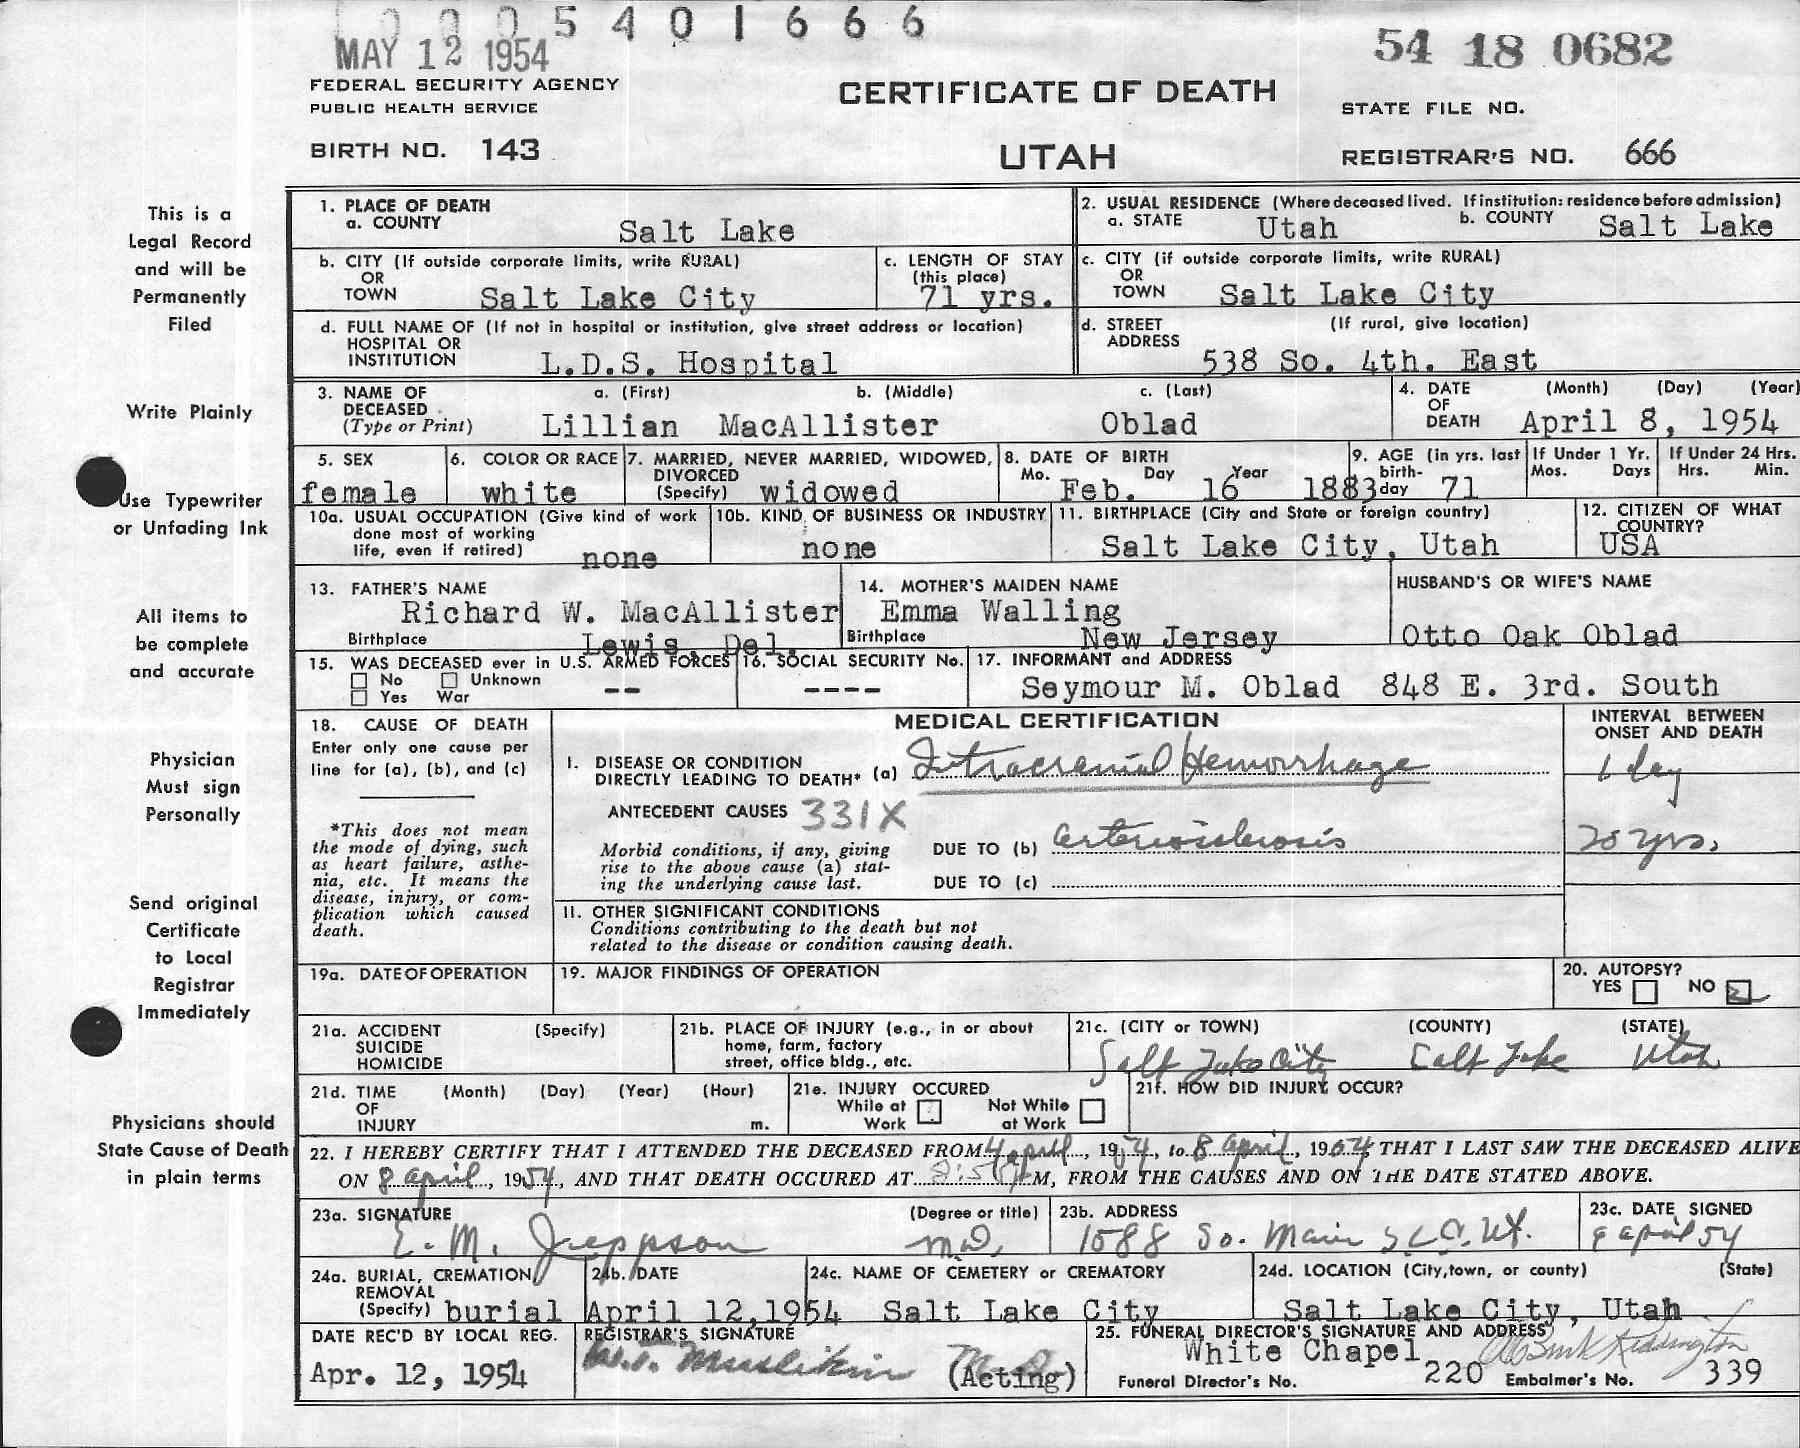 0005401666
MAY 12 1954
54 18 0682
FEDERAL SECURITY AGENCY
PUBLIC HEALTH SERVICE
CERTIFICATE OF DEATH
STATE FILE NO.
BIRTH NO. 143
UTAH
REGISTRAR'S NO. 666
This is a
Legal Record
and will be
Permanently
Filed
Write Plainly
Use Typewriter
or Unfading Ink
All items to
be complete
and accurate
Physician
Must sign
Personally
Send original
Certificate
to Local
Registrar
Immediately
Physicians should
State Cause of Death
in plain terms
1. PLACE OF DEATH
a. COUNTY Salt Lake
2. USUAL RESIDENCE (Where deceased lived. If institution: residence before admission)
a. STATE Utah b. COUNTY Salt Lake
b. CITY (If outside corporate limits, write RURAL)
OR
TOWN Salt Lake City
c. LENGTH OF STAY
(this place)
71 yrs.
c. CITY (if outside corporate limits, write RURAL)
OR
TOWN Salt Lake City
d. FULL NAME OF (If not in hospital or institution, give street address or location)
HOSPITAL OR
INSTITUTION L.D.S. Hospital
d. STREET (If rural, give location)
ADDRESS
538 So. 4th. East
3. NAME OF a. (First) b. (Middle) c. (Last)
DECEASED
(Type or Print) Lillian MacAllister Oblad
4. DATE (Month) (Day) (Year)
OF
DEATH April 8, 1954
5. SEX
female
6. COLOR OR RACE
white
7. MARRIED, NEVER MARRIED, WIDOWED,
DIVORCED
(Specify) widowed
8. DATE OF BIRTH
Mo. Day Year
Feb. 16 1883
9. AGE (in yrs. last
birth-
day 71
If Under 1 Yr.
Mos. Days
If Under 24 Hrs.
Hrs. Min.
10a. USUAL OCCUPATION (Give kind of work
done most of working
life, even if retired) none
10b. KIND OF BUSINESS OR INDUSTRY
none
11. BIRTHPLACE (City and State or foreign country)
Salt Lake City, Utah
12. CITIZEN OF WHAT
COUNTRY?
USA
13. FATHER'S NAME
Richard W. MacAllister
Birthplace Lewis, Del.
14. MOTHER'S MAIDEN NAME
Emma Walling
Birthplace New Jersey
HUSBAND'S OR WIFE'S NAME
Otto Oak Oblad
15. WAS DECEASED ever in U.S. ARMED FORCES
No Unknown
Yes War --
16. SOCIAL SECURITY No.
----
17. INFORMANT and ADDRESS
Seymour M. Oblad 848 E. 3rd. South
18. CAUSE OF DEATH
Enter only one cause per
line for (a), (b), and (c)
*This does not mean
the mode of dying, such
as heart failure, asthe-
nia, etc. It means the
disease, injury, or com-
plication which caused
death.
MEDICAL CERTIFICATION
INTERVAL BETWEEN
ONSET AND DEATH
I. DISEASE OR CONDITION
DIRECTLY LEADING TO DEATH* (a) Intracranial Hemorrhage
1 day
ANTECEDENT CAUSES 331X
Morbid conditions, if any, giving
rise to the above cause (a) stat-
ing the underlying cause last.
DUE TO (b) arteriosclerosis
20 yrs.
DUE TO (c)
II. OTHER SIGNIFICANT CONDITIONS
Conditions contributing to the death but not
related to the disease or condition causing death.
19a. DATE OF OPERATION
19. MAJOR FINDINGS OF OPERATION
20. AUTOPSY?
YES NO
21a. ACCIDENT (Specify)
SUICIDE
HOMICIDE
21b. PLACE OF INJURY (e.g., in or about
home, farm, factory
street, office bldg., etc.
21c. (CITY or TOWN) (COUNTY) (STATE)
Salt Lake City Salt Lake Utah
21d. TIME (Month) (Day) (Year) (Hour)
OF
INJURY m.
21e. INJURY OCCURED
While at Not While
Work at Work
21f. HOW DID INJURY OCCUR?
22. I HEREBY CERTIFY THAT I ATTENDED THE DECEASED FROM 4 april, 1954, to 8 april, 1954, THAT I LAST SAW THE DECEASED ALIVE
ON 8 april, 1954, AND THAT DEATH OCCURED AT M, FROM THE CAUSES AND ON THE DATE STATED ABOVE.
23a. SIGNATURE (Degree or title)
E. M. Jeppson M.D.
23b. ADDRESS
1088 So. Main S.L.C. Ut.
23c. DATE SIGNED
8 april 54
24a. BURIAL, CREMATION
REMOVAL
(Specify) burial
24b. DATE
April 12, 1954
24c. NAME OF CEMETERY or CREMATORY
Salt Lake City
24d. LOCATION (City, town, or county) (State)
Salt Lake City, Utah
DATE REC'D BY LOCAL REG.
Apr. 12, 1954
REGISTRAR'S SIGNATURE
(Acting)
25. FUNERAL DIRECTOR'S SIGNATURE AND ADDRESS
White Chapel
Funeral Director's No. 220 Embalmer's No. 339